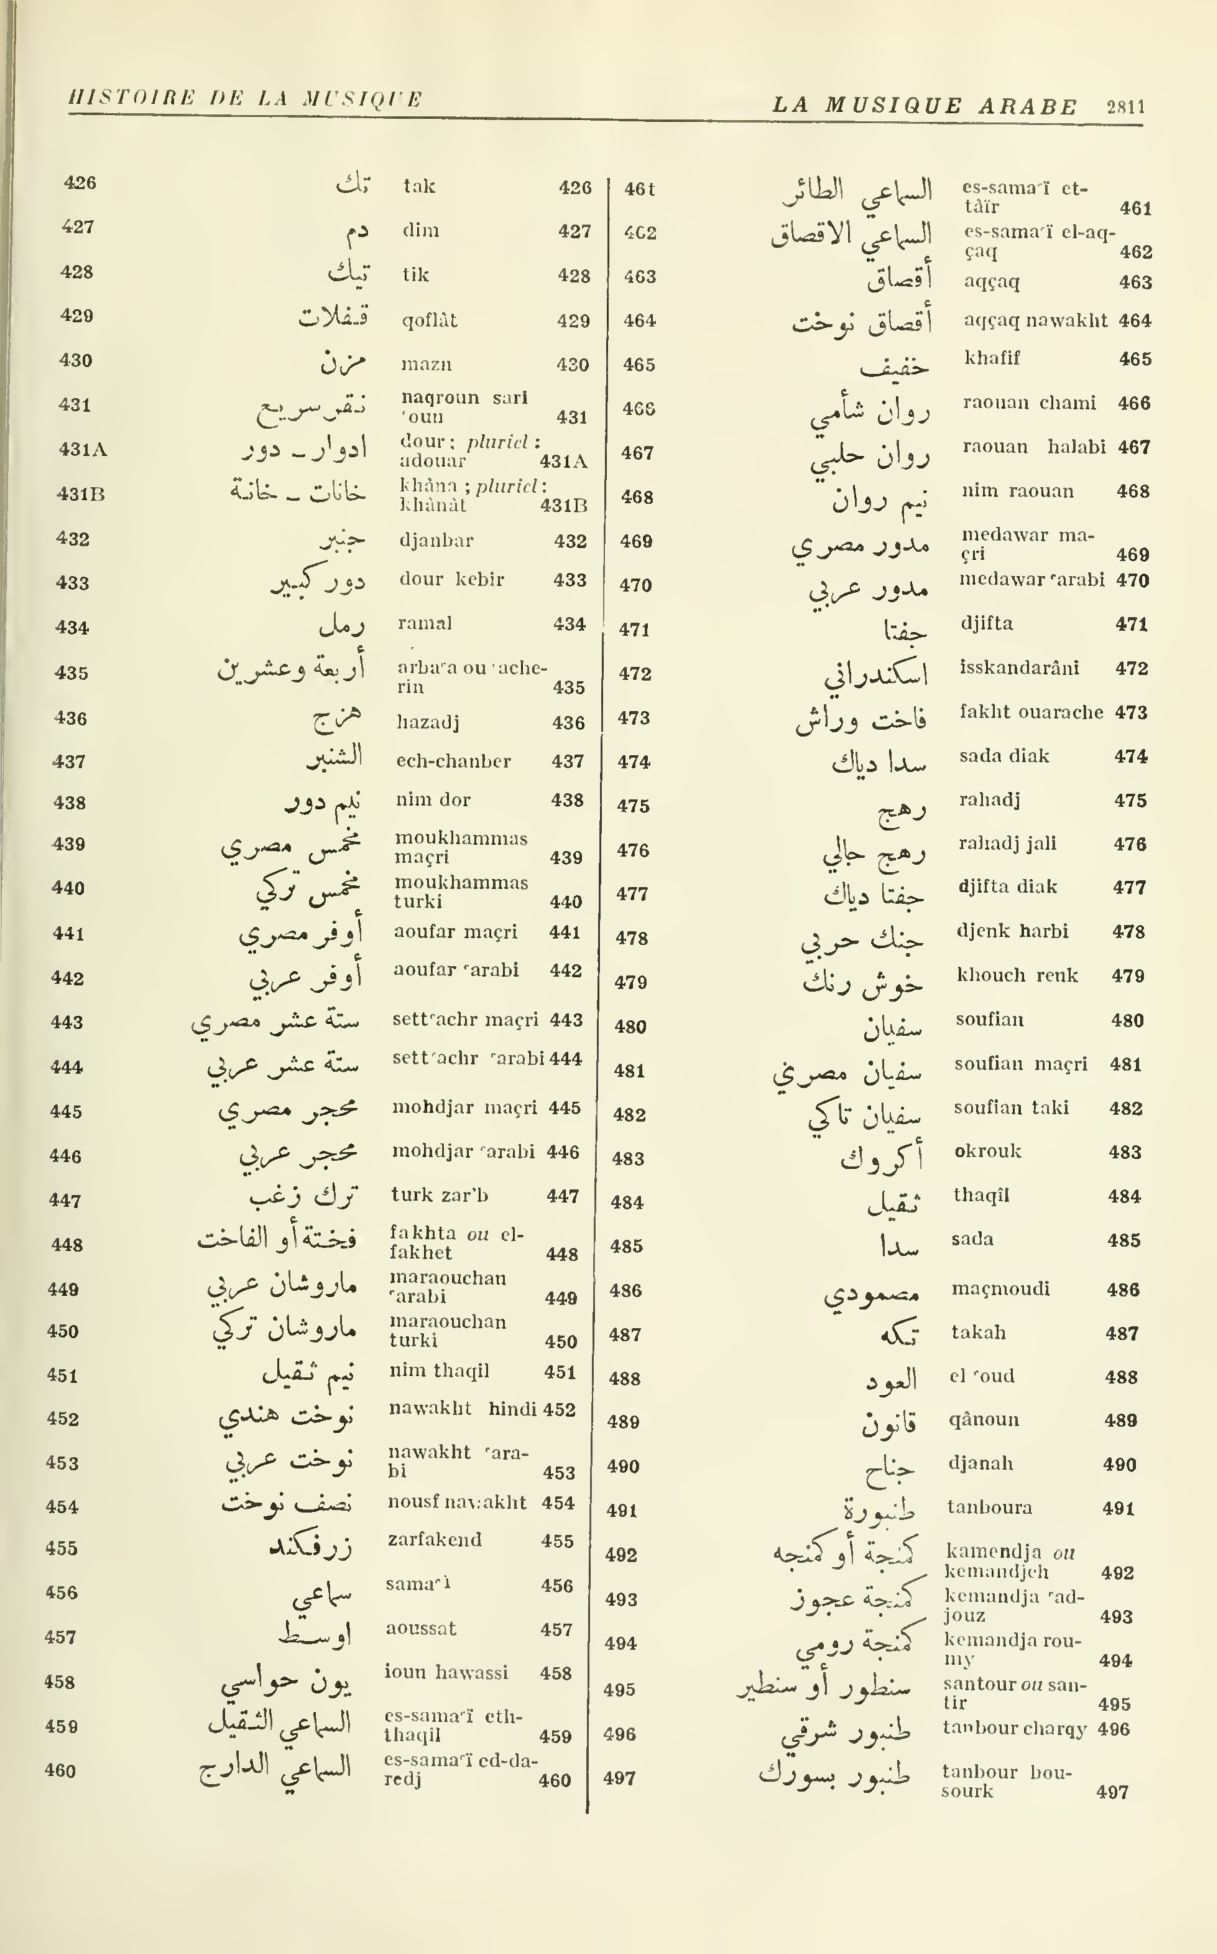 HISTOIRE DE LA MUSIQUE
LA MUSIQUE ARABE 2811
426 تك tak 426
427 دم dim 427
428 تيك tik 428
429 قفلات qoflàt 429
430 مزن mazn 430
431 نقر سريع naqroun sari
ʿoun 431
431A ادوار ـ دور dour; pluriel:
adouar 431A
431B خانات ـ خانة khâna; pluriel:
khânàt 431B
432 جنبر djanbar 432
433 دور كبير dour kebir 433
434 رمل ramal 434
435 أربعة وعشرين arbaʿa ou ʿache-
rin 435
436 هزج hazadj 436
437 الشنبر ech-chanber 437
438 نيم دور nim dor 438
439 مخمس مصري moukhammas
maçri 439
440 مخمس تركي moukhammas
turki 440
441 أوفر مصري aoufar maçri 441
442 أوفر عربي aoufar ʿarabi 442
443 ستة عشر مصري settʿachr maçri 443
444 ستة عشر عربي settʿachr ʿarabi 444
445 محجر مصري mohdjar maçri 445
446 محجر عربي mohdjar ʿarabi 446
447 ترك زغب turk zar'b 447
448 فختة أو الفاخت fakhta ou el-
fakhet 448
449 ماروشان عربي maraouchan
ʿarabi 449
450 ماروشان تركي maraouchan
turki 450
451 نيم ثقيل nim thaqil 451
452 نوخت هندي nawakht hindi 452
453 نوخت عربي nawakht ʿara-
bi 453
454 نصف نوخت nousf nawakht 454
455 زرفكند zarfakend 455
456 سماعي samaʿì 456
457 اوسط aoussat 457
458 يون حواسي ioun hawassi 458
459 السماعي الثقيل es-samaʿï eth-
thaqil 459
460 السماعي الدارج es-samaʿï ed-da-
redj 460
461 السماعي الطائر es-samaʿï et-
tàïr 461
462 السماعي الاقصاق es-samaʿï el-aq-
çaq 462
463 أقصاق aqçaq 463
464 أقصاق نوخت aqçaq nawakht 464
465 خفيف khafif 465
466 روان شأمي raouan chami 466
467 روان حلبي raouan halabi 467
468 نيم روان nim raouan 468
469 مدور مصري medawar ma-
çri 469
470 مدور عربي medawar ʿarabi 470
471 جفتا djifta 471
472 اسكندراني isskandarâni 472
473 فاخت وراش fakht ouarache 473
474 سدا دياك sada diak 474
475 رهج rahadj 475
476 رهج جالي rahadj jali 476
477 جفتا دياك djifta diak 477
478 جنك حربي djenk harbi 478
479 خوش رنك khouch renk 479
480 سفيان soufian 480
481 سفيان مصري soufian maçri 481
482 سفيان تاكي soufian taki 482
483 أكروك okrouk 483
484 ثقيل thaqîl 484
485 سدا sada 485
486 مصمودي maçmoudi 486
487 تكه takah 487
488 العود el ʿoud 488
489 قانون qânoun 489
490 جناح djanah 490
491 طنبورة tanboura 491
492 كمنجة أو كمنجه kamendja ou
kemandjeh 492
493 كمنجة عجوز kemandja ʿad-
jouz 493
494 كمنجة رومي kemandja rou-
my 494
495 سنطور أو سنطير santour ou san-
tir 495
496 طنبور شرقي tanbour charqy 496
497 طنبور بسورك tanbour bou-
sourk 497